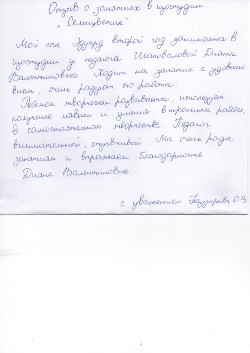 Отзыв о занятиях в изостудии
"Семицветик"
Мой сын Эдуард второй год занимается в
изостудии у педагога Шаповаловой Дианы
Валентиновны. Ходит на занятия с удоволь
вием, очень радуют его работы.
Ребенок творчески развивается, использует
полученые навыки и умения в школьных работах,
в самостоятельном творчестве. Педагог
внимательный, отзывчивый. Мы очень рады
занятиям и выражаем благодарность
Диане Валентиновне.
с уважением О.В.